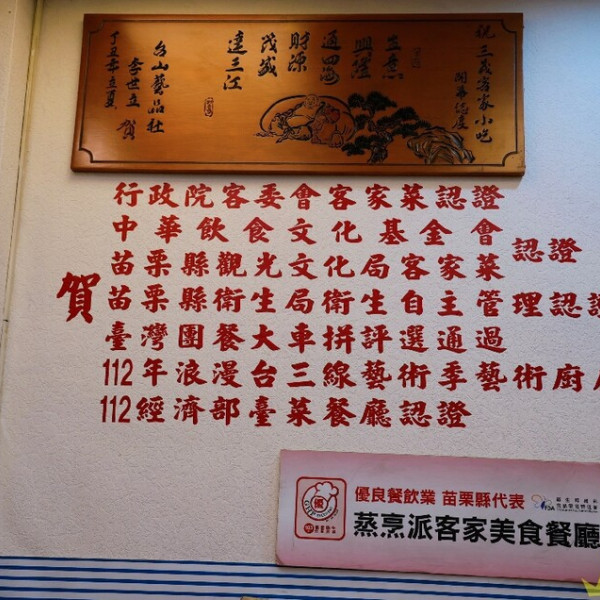 祝三義客家小吃
開幕誌慶
生意
興隆
通四海
財源
茂盛
達三江
台山藝品社
李世立
賀
丁丑年立夏
賀
行政院客委會客家菜認證
中華飲食文化基金會
苗栗縣觀光文化局客家菜
認證
苗栗縣衛生局衛生自主管理認證
臺灣團餐大車拼評選通過
112年浪漫台三線藝術季藝術廚房
112經濟部臺菜餐廳認證
優
GHP
優良餐飲業 苗栗縣代表
蒸烹派客家美食餐廳